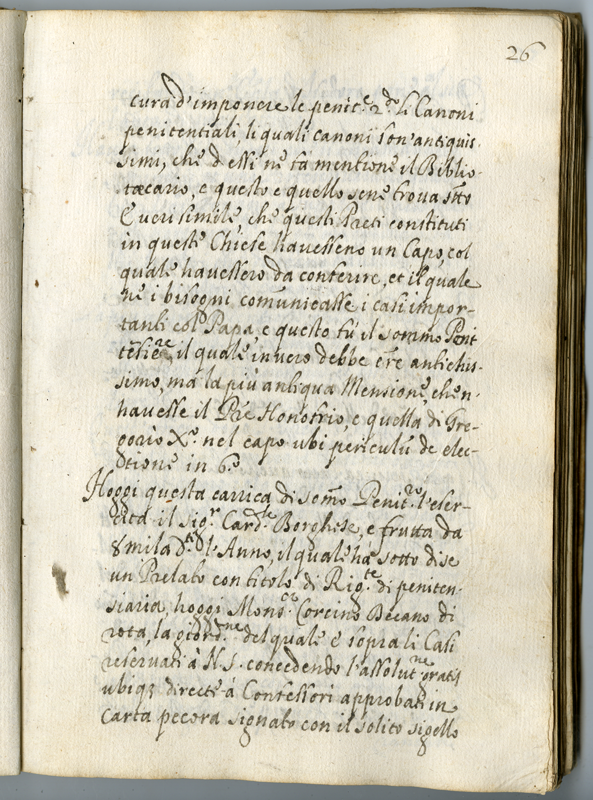 26
cura d'imponere le penit.e 2.do li Canoni
penitentiali, li quali canoni son' antiquis-
simi, che d'essi ne fa mentione il Biblio-
tæcario, e questo e quello se ne trova s̃tto
È verisimile che questi Preti constituti
in queste Chiese havesseno un Capo, col
quale havessero da conferire, et il quale
ne i bisogni comunicasse i casi impor-
tanti col Papa, e questo fù il sommo Penit
il quale in vero debbe ẽre antichis-
simo, ma la più antiqua Mensione, che n'
havesse il Pre Honofrio, e quella di Gre-
gorio X.o nel capo ubi periculũ de elec-
tione in 6.o
Hoggi questa carrica di som̃o Penit.re l'eser-
cita il sig.r Card.le Borghese, e frutta da
8 mila d.ti l'Anno, il quale ha sotto di se
un Prelato con titolo di Rig.te di peniten-
siaria, hoggi Mons.r Corcino Decano di
rota, la del quale è sopra li Casi
reservati à N. S. concedendo l'assolut.ne gratis
ubiq3 directe à Confessori approbati in
carta pecora signato con il solito sigello